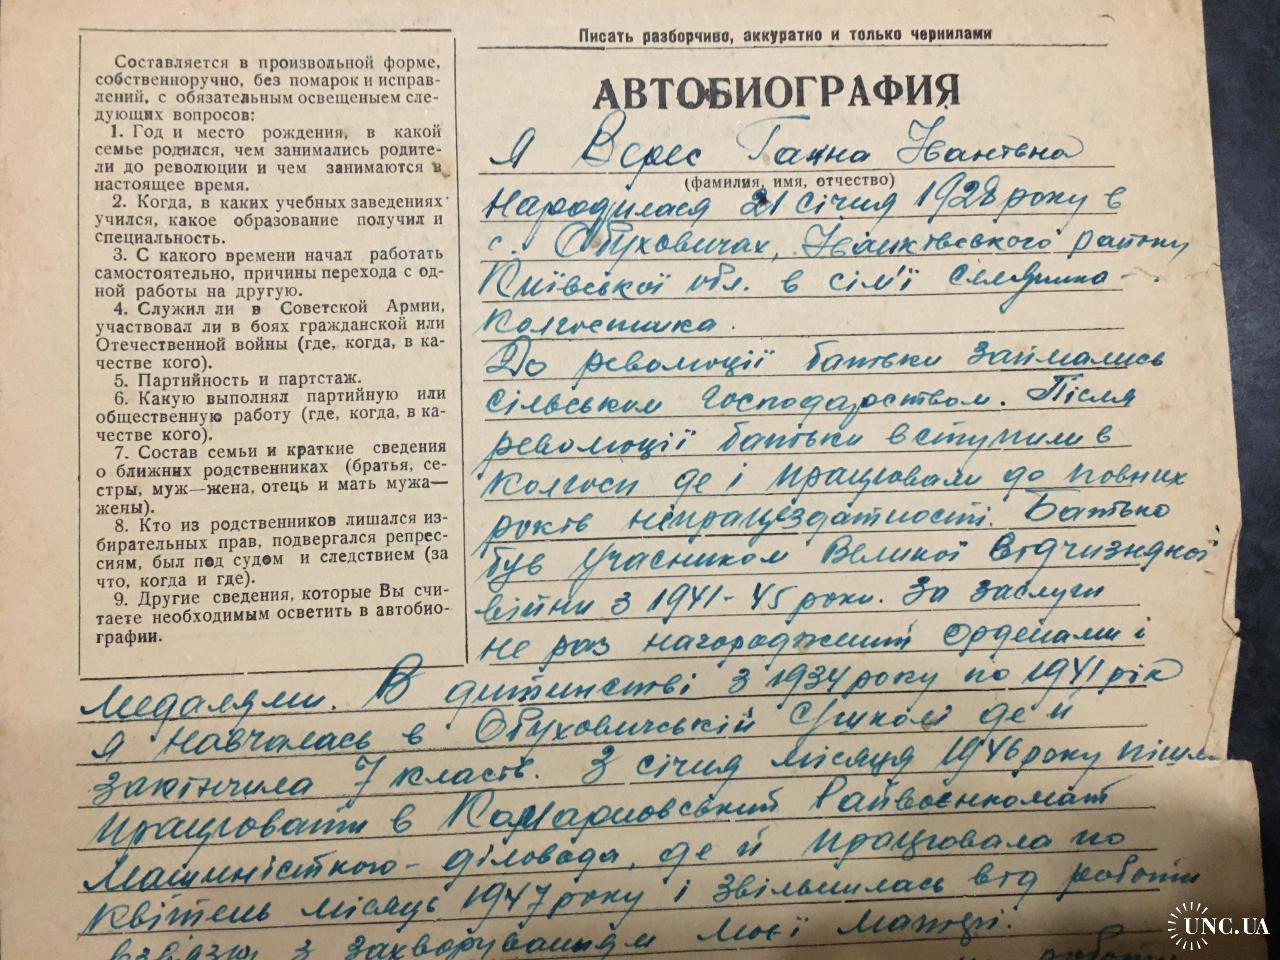 Писать разборчиво, аккуратно и только чернилами
АВТОБИОГРАФИЯ
Составляется в произвольной форме,
собственноручно, без помарок и исправ-
лений, с обязательным освещеныем сле-
дующих вопросов:
1. Год и место рождения, в какой
семье родился, чем занимались родите-
ли до революции и чем занимаются в
настоящее время.
2. Когда, в каких учебных заведениях
учился, какое образование получил и
специальность.
3. С какого времени начал работать
самостоятельно, причины перехода с од-
ной работы на другую.
4. Служил ли в Советской Армии,
участвовал ли в боях гражданской или
Отечественной войны (где, когда, в ка-
честве кого).
5. Партийность и партстаж.
6. Какую выполнял партийную или
общественную работу (где, когда, в ка-
честве кого).
7. Состав семьи и краткие сведения
о ближних родственниках (братья, се-
стры, муж—жена, отець и мать мужа—
жены).
8. Кто из родственников лишался из-
бирательных прав, подвергался репрес-
сиям, был под судом и следствием (за
что, когда и где).
9. Другие сведения, которые Вы счи-
таете необходимым осветить в автобио-
графии.
Я Верес Ганна Івантвна
(фамилия, имя, отчество)
Народилася 21 січня 1928 року в
с. Обуховичах, Іванківського району
Київської обл. в сім'ї селянина-
колгоспника.
До революції батьки займались
сільським господарством. Після
революції батьки вступили в
колгосп де і працювали до повних
років непрацездатності. Батько
був учасником Великої Вітчизняної
війни з 1941-45 роки. За заслуги
не раз нагороджений орденами і
медалями. В дитинстві з 1934 року по 1941 рік
я навчалась в Обуховичській школі де й
закінчила 7 класів. З січня місяця 1946 року пішла
працювати в Райвоєнкомат
машиністкою-діловода, де й працювала по
квітень місяць 1947 року і звільнилась від роботи
в звязку з захворуванням моєї матері.
роботи
UNC.UA